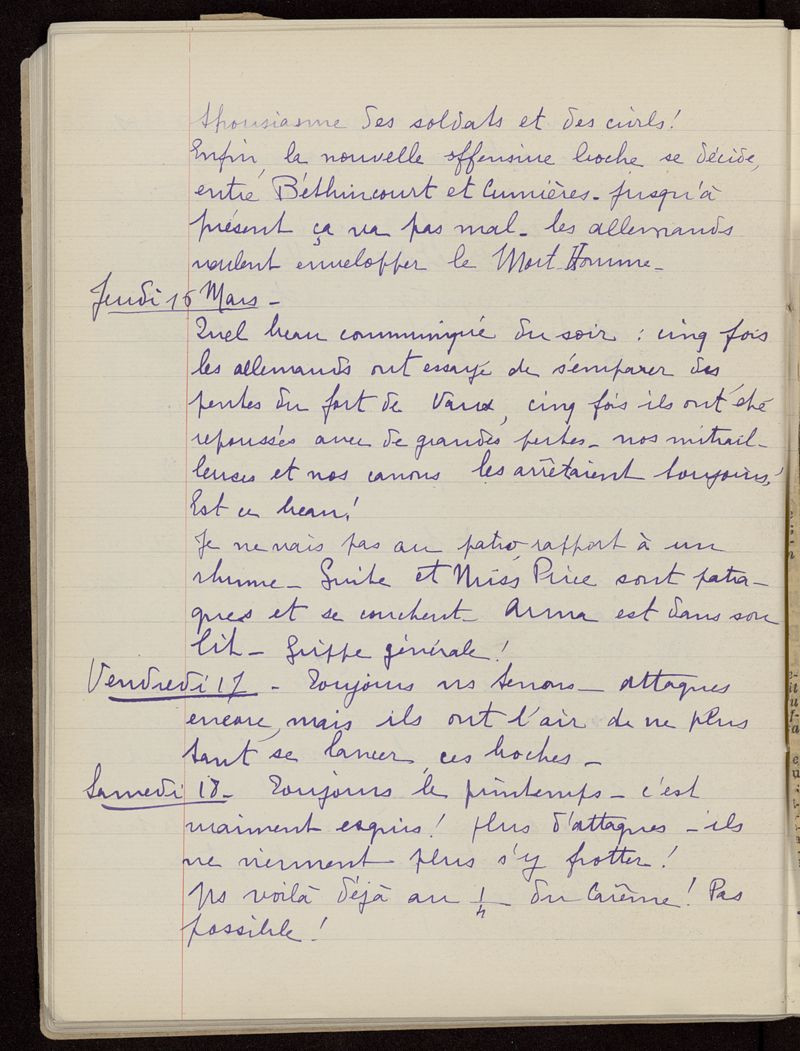 thousiasme des soldats et des civils!
Enfin, la nouvelle offensive boche se décide,
entre Béthincourt et Cumières. Jusqu'à
présent ça va pas mal. les allemands
veulent envelopper le Mort-Homme.
Jeudi 16 Mars -
Quel beau communiqué du soir : cinq fois
les allemands ont essayé de s'emparer des
pentes du fort de Vaux, cinq fois ils ont été
repoussés avec de grandes pertes - nos mitrail-
leuses et nos canons les arrêtaient toujours!
Est ce beau!
Je ne vais pas au patro, rapport à un
rhume - Guite et Miss Price sont patra-
ques et se couchent - Anna est dans son
lit - Grippe générale!
Vendredi 17 - Toujours ns tenons - attaques
encore, mais ils ont l'air de ne plus
tant se lancer, ces boches -
Samedi 18 - Toujours le printemps - c'est
vraiment exquis! plus d'attaques - ils
ne viennent plus s'y frotter!
Ns voilà déjà au 1/4 du Carême! Pas
possible!